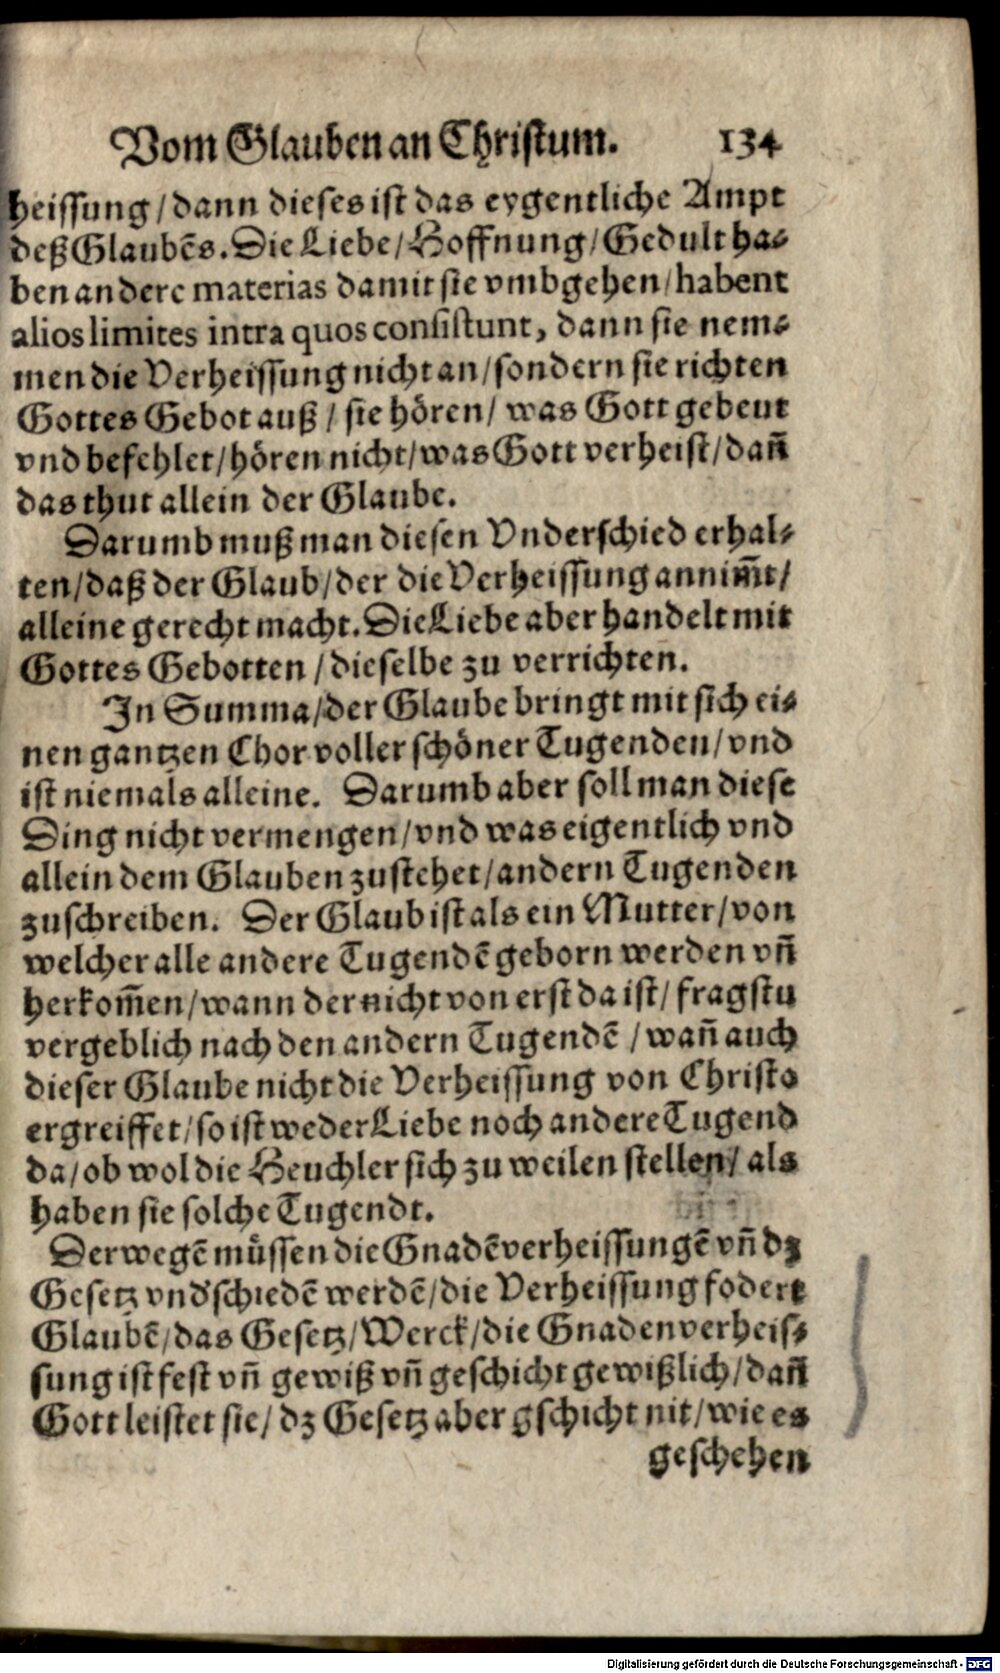 Vom Glauben an Christum. 134
heissung / dann dieses ist das eygentliche Ampt
deß Glaubẽs. Die Liebe / Hoffnung / Gedult ha-
ben andere materias damit sie vmbgehen / habent
alios limites intra quos consistunt, dann sie nem-
men die Verheissung nicht an / sondern sie richten
Gottes Gebot auß / sie hören / was Gott gebeut
vnd befehlet / hören nicht / was Gott verheist / dañ
das thut allein der Glaube.
Darumb muß man diesen Vnderschied erhal-
ten / daß der Glaub / der die Verheissung annim̃t /
alleine gerecht macht. Die Liebe aber handelt mit
Gottes Gebotten / dieselbe zu verrichten.
In Summa / der Glaube bringt mit sich ei-
nen gantzen Chor voller schöner Tugenden / vnd
ist niemals alleine. Darumb aber soll man diese
Ding nicht vermengen / vnd was eigentlich vnd
allein dem Glauben zustehet / andern Tugenden
zuschreiben. Der Glaub ist als ein Mutter / von
welcher alle andere Tugendẽ geborn werden vñ
herkom̃en / wann der nicht von erst da ist / fragstu
vergeblich nach den andern Tugendẽ / wañ auch
dieser Glaube nicht die Verheissung von Christo
ergreiffet / so ist weder Liebe noch andere Tugend
da / ob wol die Heuchler sich zu weilen stellen / als
haben sie solche Tugendt.
Derwegẽ müssen die Gnadẽverheissungẽ vñ dz
Gesetz vnd'schiedẽ werdẽ / die Verheissung fodert
Glaubẽ / das Gesetz / Werck / die Gnadenverheis-
sung ist fest vñ gewiß vñ geschicht gewißlich / dañ
Gott leistet sie / dz Gesetz aber gschicht nit / wie es
geschehen
Digitalisierung gefördert durch die Deutsche Forschungsgemeinschaft - DFG